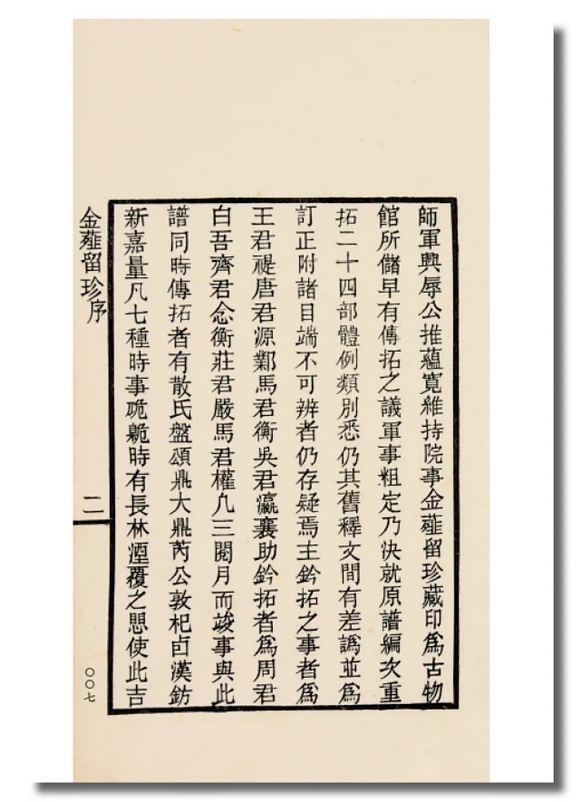 師軍興辱公推蘊寬維持院事金薤留珍藏印爲古物
館所儲早有傳拓之議軍事粗定乃決就原譜編次重
拓二十四部體例類別悉仍其舊釋文間有差譌並爲
訂正附諸目端不可辨者仍存疑焉主鈐拓之事者爲
王君禔唐君源鄴馬君衡吳君瀛襄助鈐拓者爲周君
白吾齊君念衡莊君嚴馬君權凡三閱月而竣事與此
譜同時傳拓者有散氏盤頌鼎大鼎芮公敦杞卣漢鈁
新嘉量凡七種時事硊䡾時有長林湮覆之思使此吉
金薤留珍序
二
〇〇七